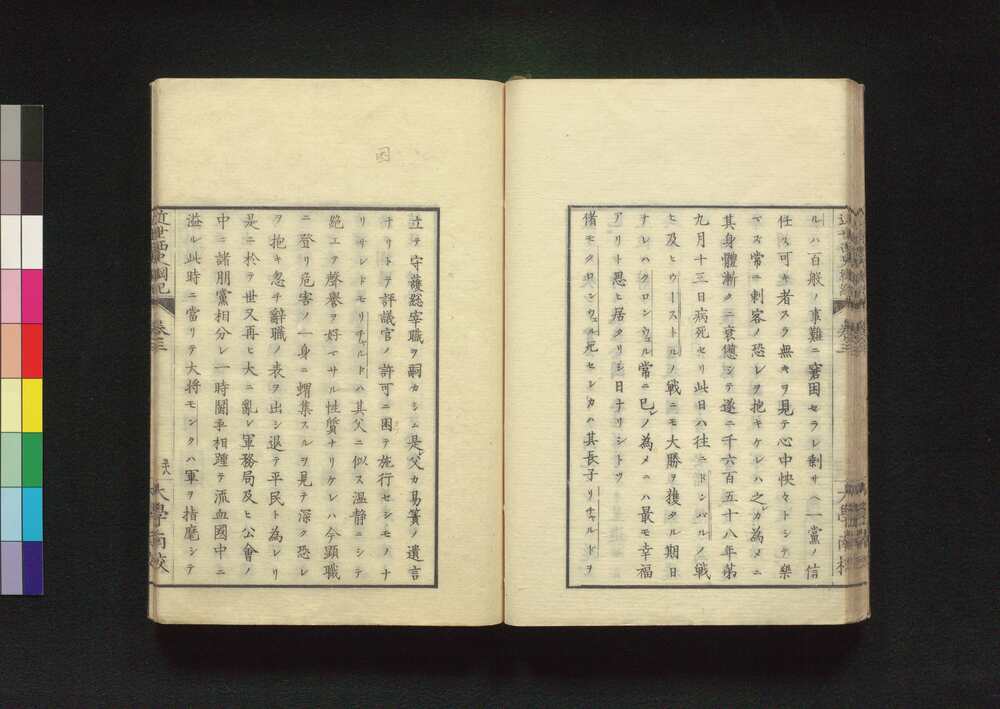 ルハ百般ノ事難ニ窘困セラレ剰サヘ一黨ノ信
任ス可キ者スラ無キヲ見テ心中怏々トシテ樂
マス常ニ刺客ノ恐レヲ抱キケレハ之カ為メニ
其身體漸クニ衰憊シテ遂ニ千六百五十八年第
九月十三日病死セリ此日ハ往ニドンバルノ戰
ヒ及ヒウーストルノ戰ニモ大勝ヲ獲タル期日
ナレハクロンウェル常ニ已レノ為メニハ最モ幸福
アリト思ヒ居タリシ日ナリシトソ
偖モクロンウェル死センカハ其長子リチャルドヲ
立テ守護総宰職ヲ嗣カシム是父カ易簀ノ遺言
ナリトテ評議官ノ許可ニ困テ施行セシモノナ
リサレドモリチャルドハ其父ニ似ス温静ニシテ
絶エテ聲譽ヲ好マサル性質ナリケレハ今顯職
ニ登リ危害ノ一身ニ蝟集スルヲ見テ深ク恐レ
ヲ抱キ忽チ辭職ノ表ヲ出シ退テ平民ト為レリ
是ニ於テ世又再ヒ大ニ亂レ軍務局及ヒ公會ノ
中ニ諸朋黨相分レ一時鬪爭相踵テ流血國中ニ
溢ル此時ニ當リテ大将モンクハ軍ヲ指麾シテ
近世西史綱紀
卷三
大學南校